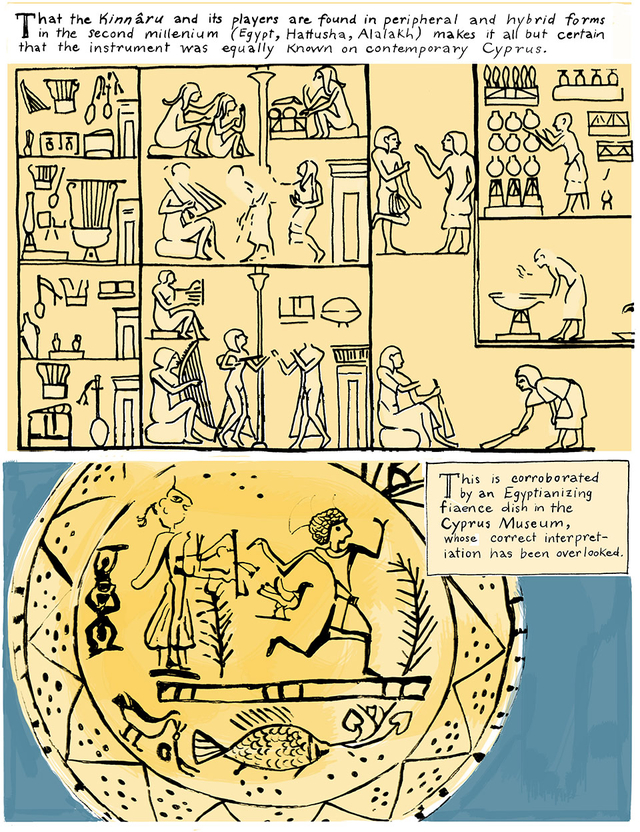 That the Kinnâru and its players are found in peripheral and hybrid forms
in the second millenium (Egypt, Hattusha, Alalakh) makes it all but certain
that the instrument was equally known on contemporary Cyprus.
This is corroborated
by an Egyptianizing
fiaence dish in the
Cyprus Museum,
whose correct interpret-
iation has been overlooked.